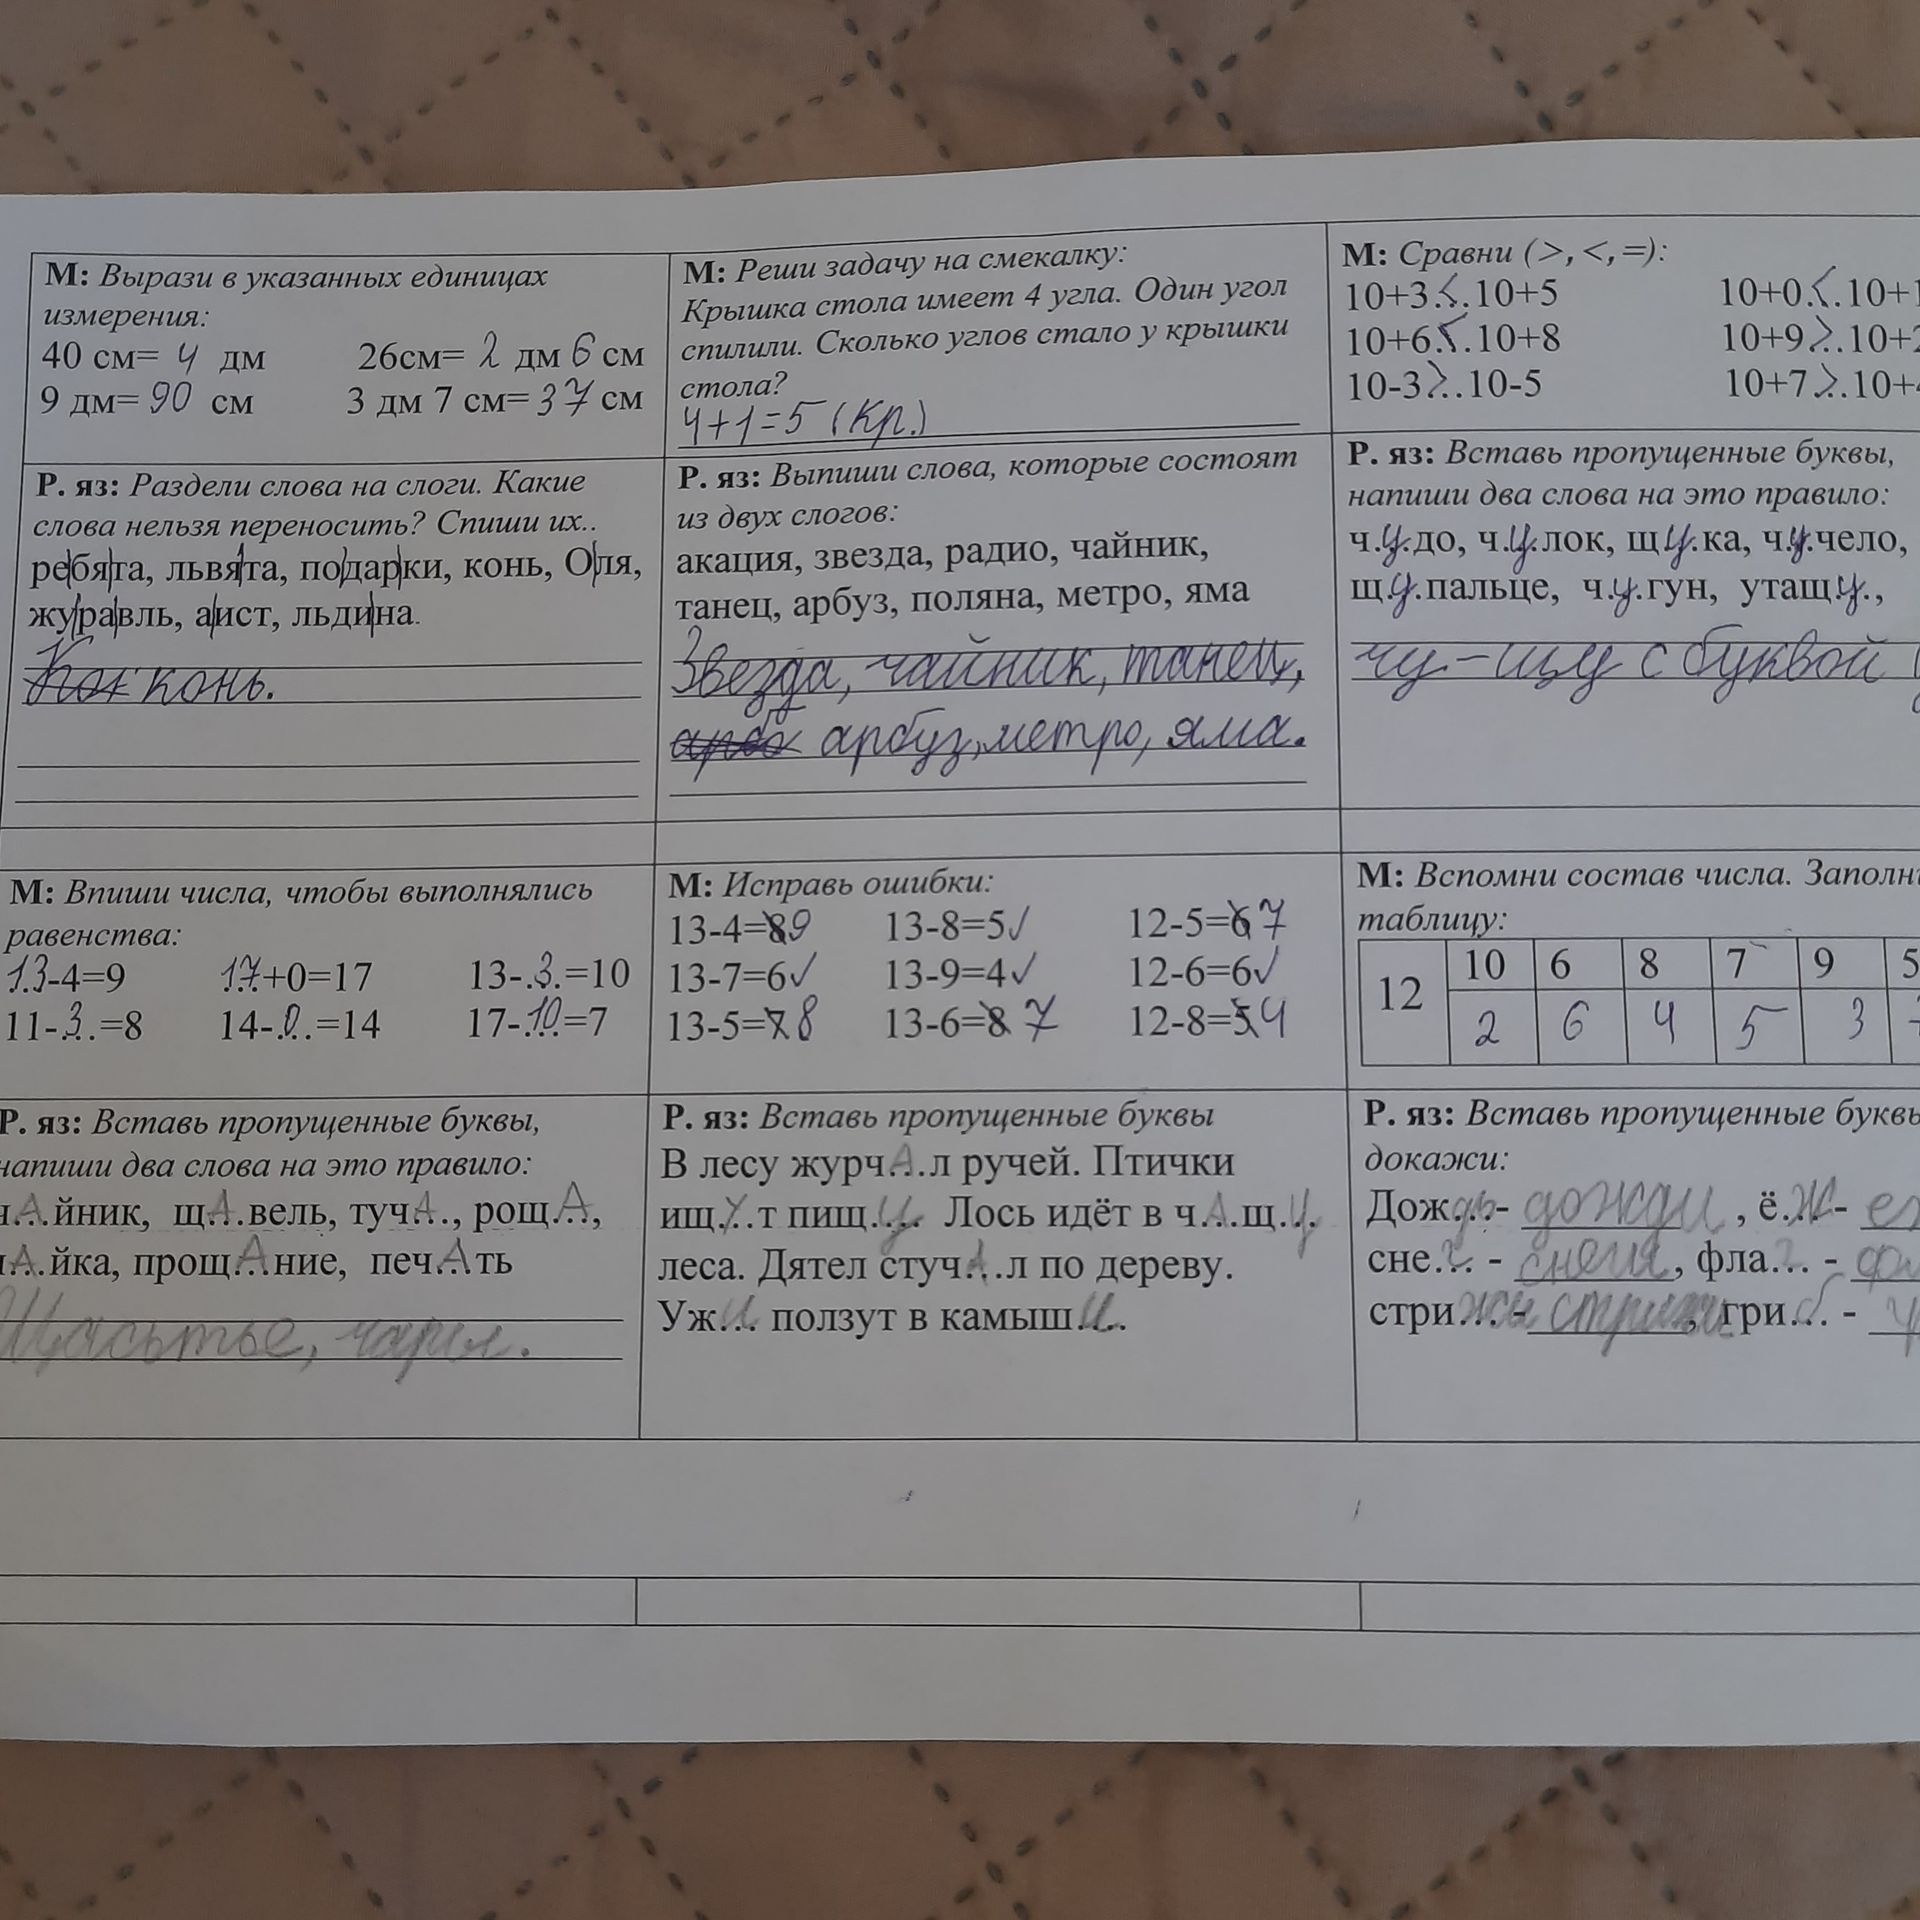 М: Вырази в указанных единицах
измерения:
40 см= 4 дм 26см= 2 дм 6 см
9 дм= 90 см 3 дм 7 см= 37 см
М: Реши задачу на смекалку:
Крышка стола имеет 4 угла. Один угол
спилили. Сколько углов стало у крышки
стола?
4+1=5 (кр.)
М: Сравни (>,<,=):
10+3.<.10+5 10+0.<.10+1
10+6.<.10+8 10+9.>.10+2
10-3.>.10-5 10+7.>.10+4
Р. яз: Раздели слова на слоги. Какие
слова нельзя переносить? Спиши их..
ре|бя|та, львя|та, по|дар|ки, конь, О|ля,
жу|ра|вль, а|ист, льди|на.
конь.
Р. яз: Выпиши слова, которые состоят
из двух слогов:
акация, звезда, радио, чайник,
танец, арбуз, поляна, метро, яма
Звезда, чайник, танец,
арбуз, метро, яма.
Р. яз: Вставь пропущенные буквы,
напиши два слова на это правило:
ч.у.до, ч.у.лок, щ.у.ка, ч.у.чело,
щ.у.пальце, ч.у.гун, утащ.у.,
чу-щу с буквой
М: Впиши числа, чтобы выполнялись
равенства:
.13.-4=9 .17.+0=17 13-.3.=10
11-.3.=8 14-.0.=14 17-.10.=7
М: Исправь ошибки:
13-4=8 9 13-8=5✓ 12-5=6 7
13-7=6✓ 13-9=4✓ 12-6=6✓
13-5=7 8 13-6=8 7 12-8=5 4
М: Вспомни состав числа. Заполни
таблицу:
12 10 6 8 7 9 5
2 6 4 5 3
Р. яз: Вставь пропущенные буквы,
напиши два слова на это правило:
ч.А.йник, щ.А.вель, туч.А., рощ.А.,
.А.йка, прощ.А.ние, печ.А.ть
Щасьтье,
Р. яз: Вставь пропущенные буквы
В лесу журч.А.л ручей. Птички
ищ.У.т пищ.у. Лось идёт в ч.А.щ.у.
леса. Дятел стуч.А.л по дереву.
Уж.и. ползут в камыш.и.
Р. яз: Вставь пропущенные буквы
докажи:
Дож.дь.- дожди, ё.ж.-
сне.г. - снега, фла.г. -
стри.ж.- гри.б. -